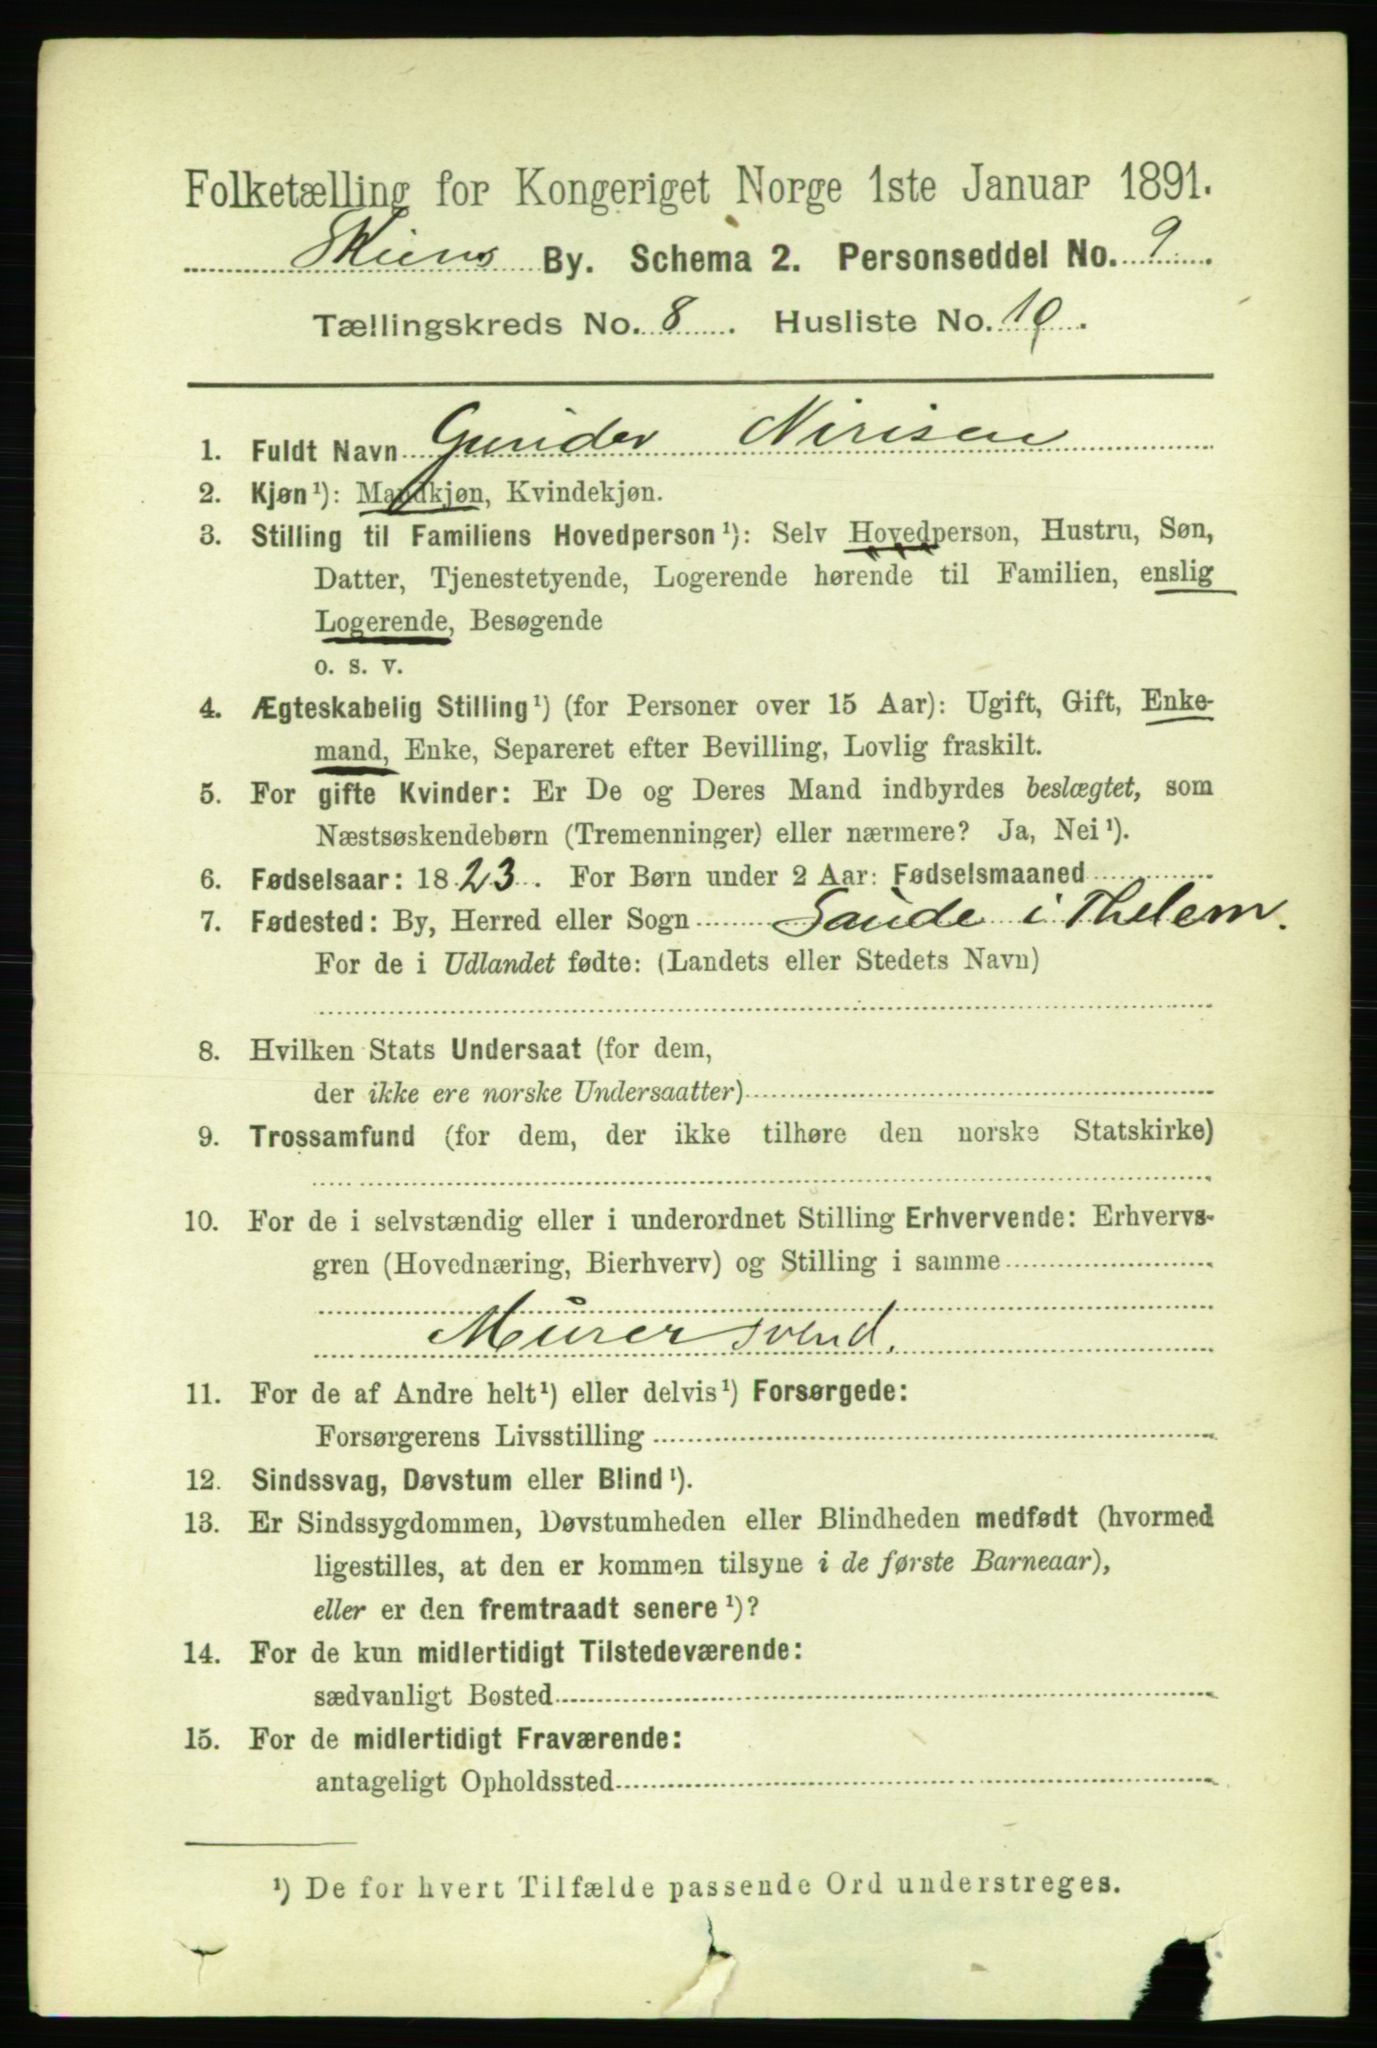 Folketælling for Kongeriget Norge 1ste Januar 1891.
Skiens By. Schema 2. Personseddel No. 9
Tællingskreds No. 8. Husliste No. 19.
1. Fuldt Navn Gunder Nirisen
2. Kjøn¹): Mandkjøn, Kvindekjøn.
3. Stilling til Familiens Hovedperson¹): Selv Hovedperson, Hustru, Søn,
Datter, Tjenestetyende, Logerende hørende til Familien, enslig
Logerende, Besøgende
o. s. v.
4. Ægteskabelig Stilling¹) (for Personer over 15 Aar): Ugift, Gift, Enke-
mand, Enke, Separeret efter Bevilling, Lovlig fraskilt.
5. For gifte Kvinder: Er De og Deres Mand indbyrdes beslægtet, som
Næstsøskendebørn (Tremenninger) eller nærmere? Ja, Nei¹).
6. Fødselsaar: 1823. For Børn under 2 Aar: Fødselsmaaned
7. Fødested: By, Herred eller Sogn Saude i Thelem.
For de i Udlandet fødte: (Landets eller Stedets Navn)
8. Hvilken Stats Undersaat (for dem,
der ikke ere norske Undersaatter)
9. Trossamfund (for dem, der ikke tilhøre den norske Statskirke)
10. For de i selvstændig eller i underordnet Stilling Erhvervende: Erhvervs-
gren (Hovednæring, Bierhverv) og Stilling i samme
Murersvend.
11. For de af Andre helt¹) eller delvis¹) Forsørgede:
Forsørgerens Livsstilling
12. Sindssvag, Døvstum eller Blind¹).
13. Er Sindssygdommen, Døvstumheden eller Blindheden medfødt (hvormed
ligestilles, at den er kommen tilsyne i de første Barneaar),
eller er den fremtraadt senere¹)?
14. For de kun midlertidigt Tilstedeværende:
sædvanligt Bosted
15. For de midlertidigt Fraværende:
antageligt Opholdssted
¹) De for hvert Tilfælde passende Ord understreges.